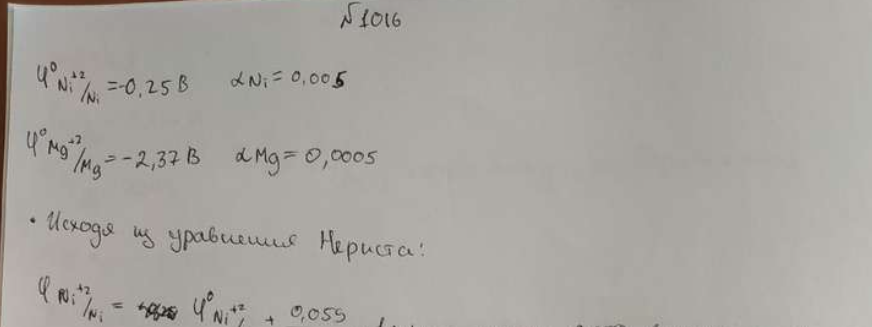 №1016
φ⁰ Ni⁺²/Ni = -0,25 В αNi = 0,005
φ⁰ Mg⁺²/Mg = -2,37 В αMg = 0,0005
• Исходя из уравнения Нернста:
φ Ni⁺²/Ni = φ⁰ Ni⁺²/ + 0,059